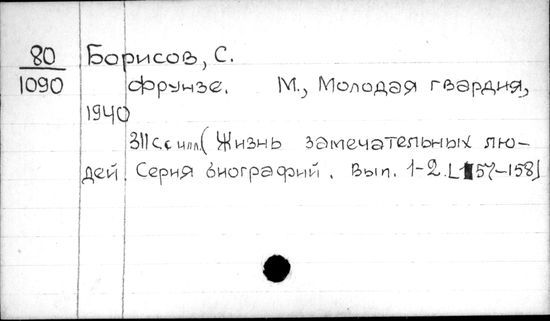 80 Борисов, С.
1090 Фрунзе. М., Молодая гвардия,
1940
311 с с илл. (Жизнь замечательных лю-
дей. Серия биографий. Вып. 1-2. [157-158]